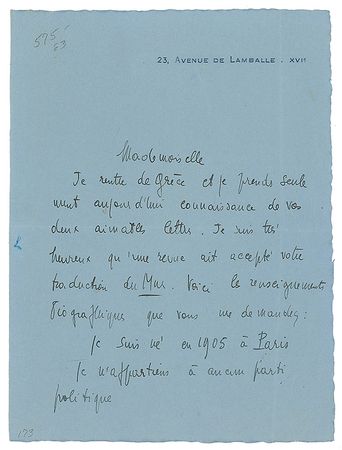 595
53
23, AVENUE DE LAMBALLE . XVIe
Mademoiselle
Je rentre de Grèce et je prends seule
ment aujourd'hui connaissance de vos
deux aimables lettres. Je suis très
heureux qu'une revue ait accepté votre
traduction du Mur. Voici les renseignements
biographiques que vous me demandez :
Je suis né en 1905 à Paris
Je n'appartiens à aucun parti
politique
173